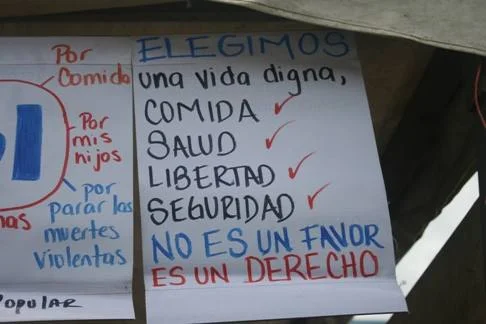 Por
Comida
Por
mis
hijos
por
parar las
muertes
violentas
Popular
ELEGIMOS
una vida digna,
COMIDA
SALUD
LIBERTAD
SEGURIDAD
NO ES UN FAVOR
ES UN DERECHO